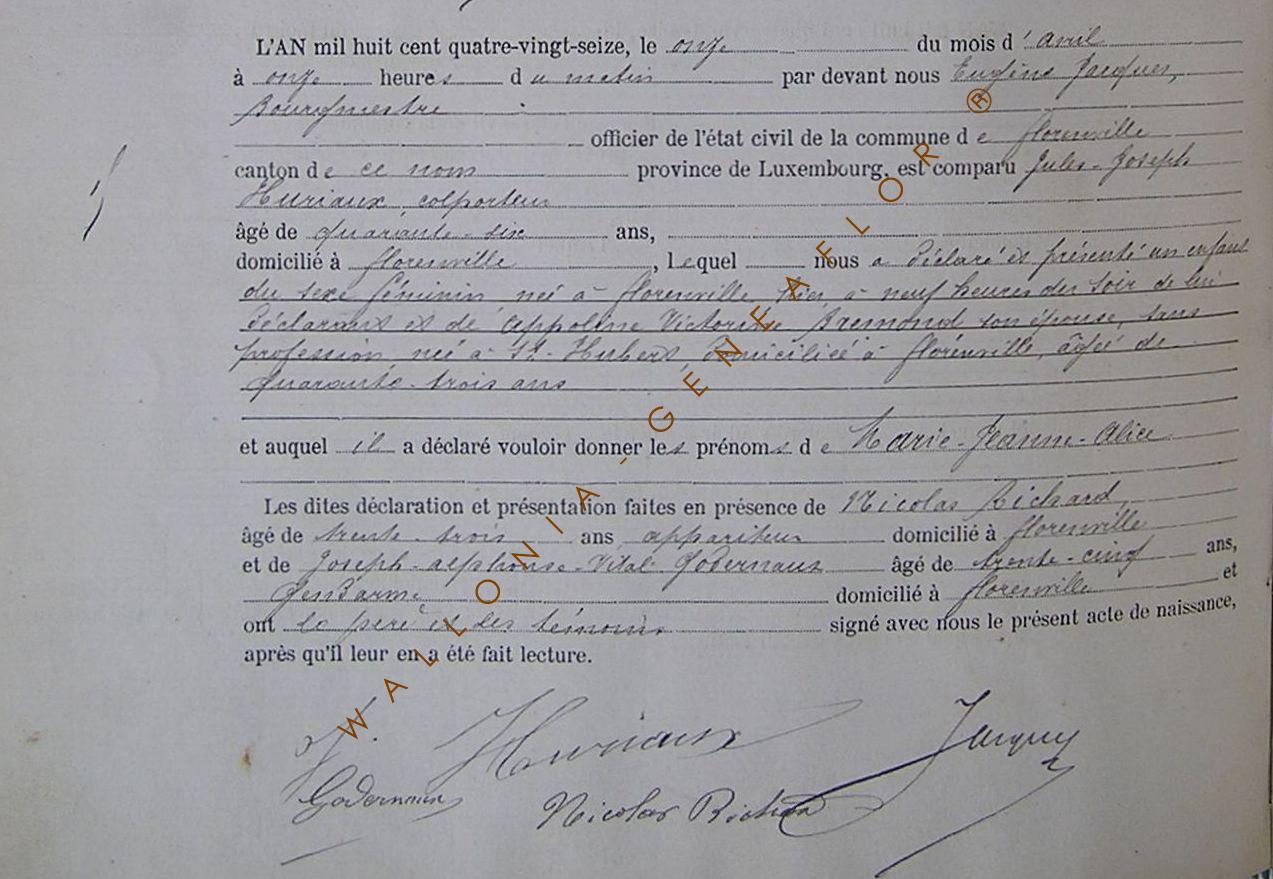 L'AN mil huit cent quatre-vingt-seize, le onze du mois d'avril
à onze heures du matin par devant nous Eugène Jacques,
Bourgmestre
officier de l'état civil de la commune de florenville
canton de ce nom province de Luxembourg, est comparu Jules-Joseph
Huriaux, colporteur
âgé de quarante-six ans,
domicilié à florenville, lequel nous a déclaré et présenté un enfant
du sexe féminin née à florenville, hier, à neuf heures du soir de lui
déclarant et de Appoline Victorine Bremond son épouse, sans
profession, née à St-Hubert, domiciliée à florenville, âgée de
quarante-trois ans
et auquel il a déclaré vouloir donner les prénoms de Marie-Jeanne-Alice
Les dites déclaration et présentation faites en présence de Nicolas Richard
âgé de trente-trois ans appariteur domicilié à florenville
et de Joseph-alphonse-Vital Godernaux âgé de trente-cinq ans,
Gendarme domicilié à florenville et
ont le père et les témoins signé avec nous le présent acte de naissance,
après qu'il leur en a été fait lecture.
Huriaux Jacques
Godernaux Nicolas Richard
WALLONIA-GENEAFLOR®